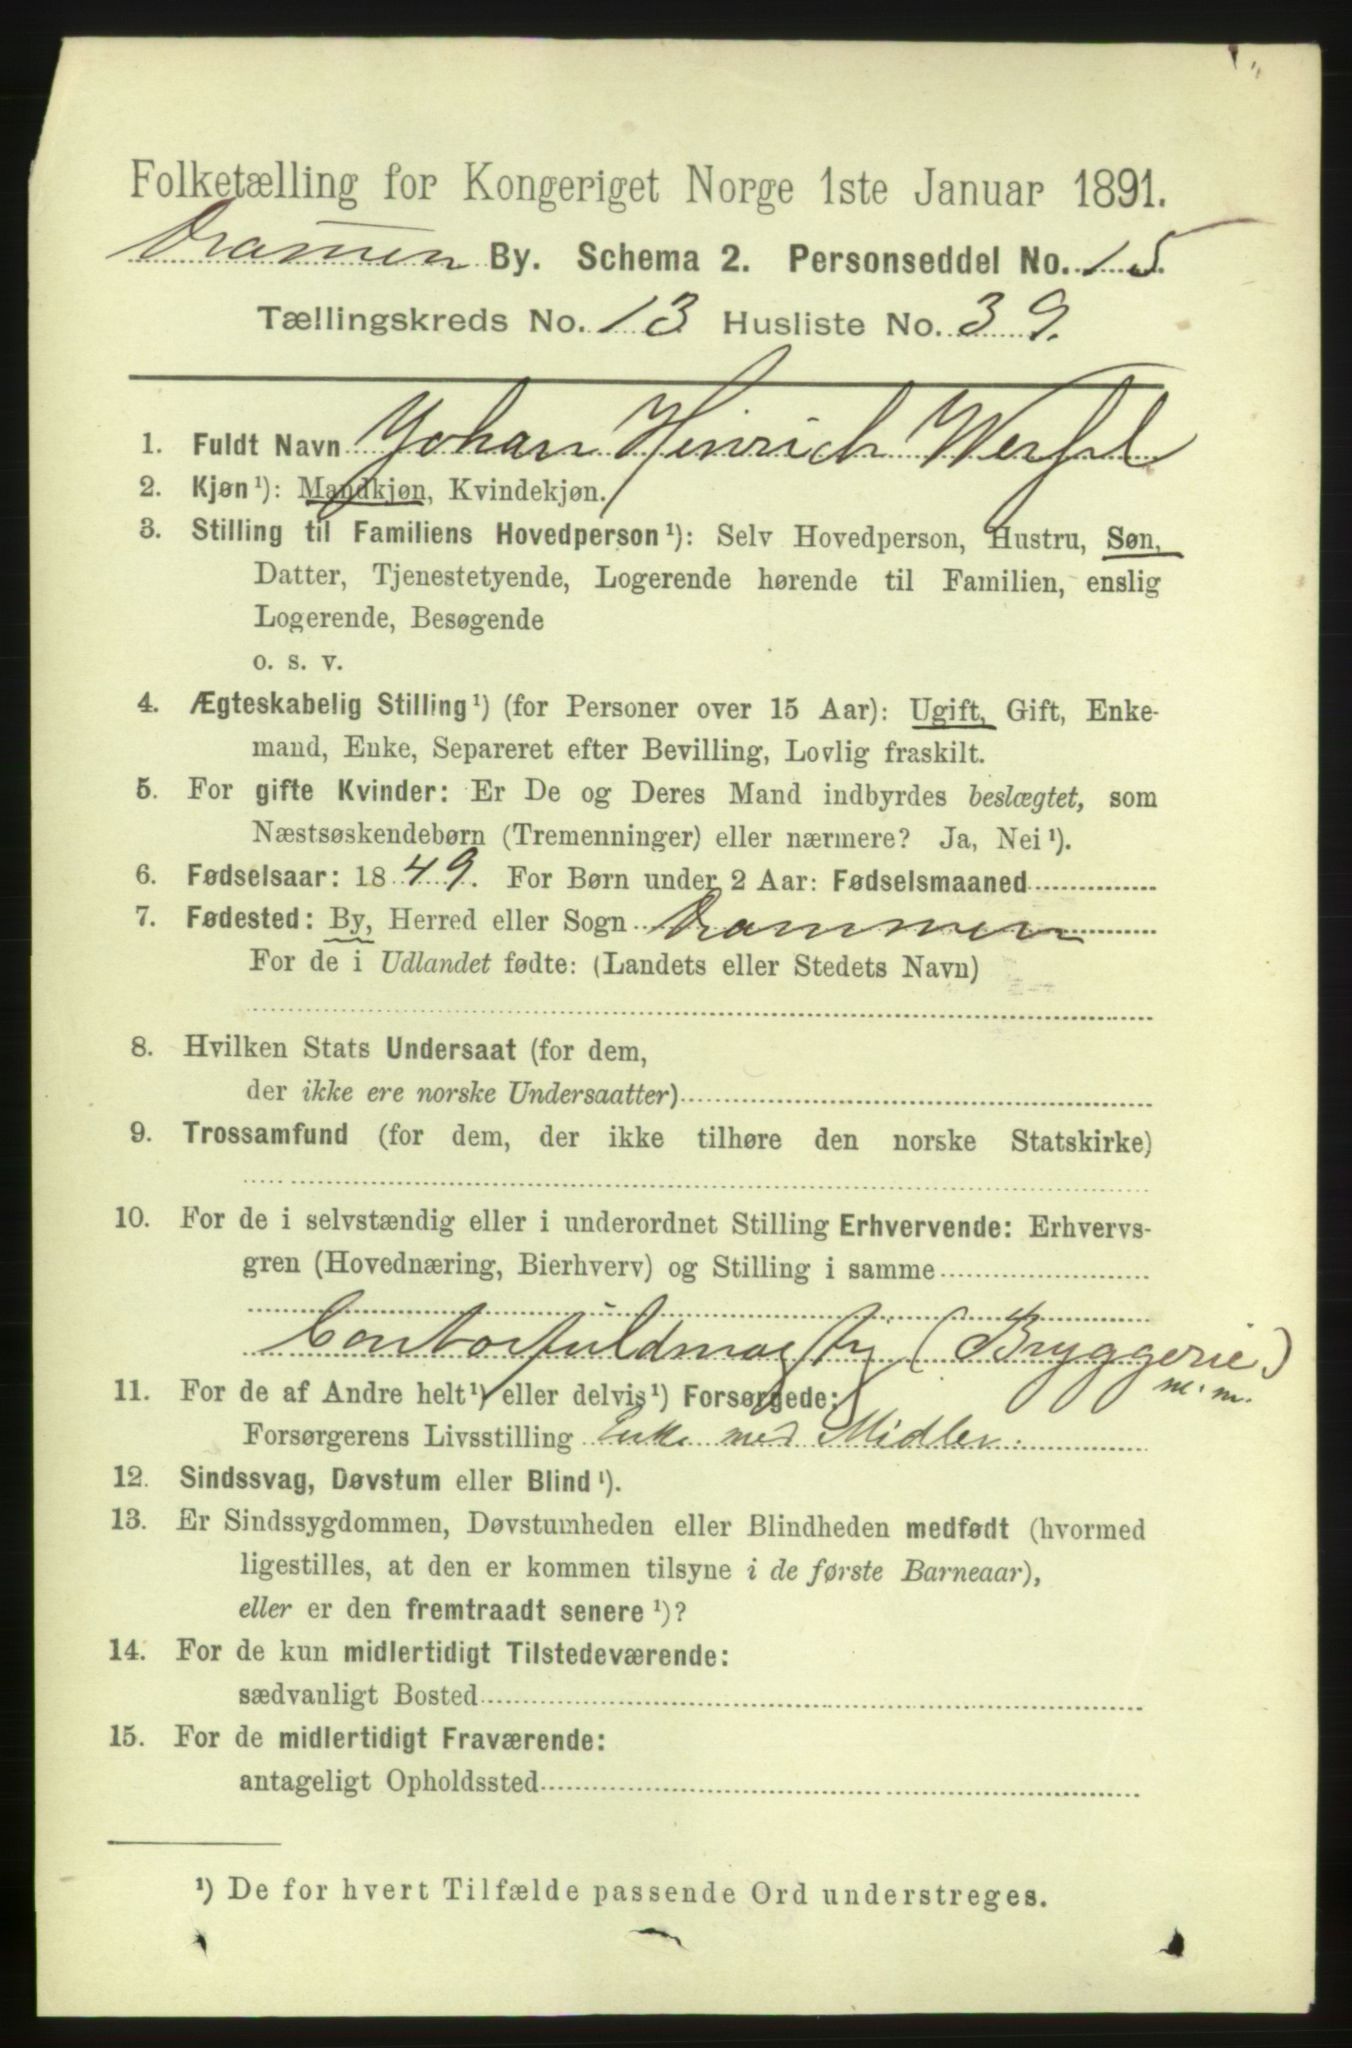 Folketælling for Kongeriget Norge 1ste Januar 1891.
Drammen By. Schema 2. Personseddel No. 15.
Tællingskreds No. 13 Husliste No. 39.
1. Fuldt Navn Johan Henrich
2. Kjøn ¹): Mandkjøn, Kvindekjøn.
3. Stilling til Familiens Hovedperson ¹): Selv Hovedperson, Hustru, Søn,
Datter, Tjenestetyende, Logerende hørende til Familien, enslig
Logerende, Besøgende
o. s. v.
4. Ægteskabelig Stilling ¹) (for Personer over 15 Aar): Ugift, Gift, Enke-
mand, Enke, Separeret efter Bevilling, Lovlig fraskilt.
5. For gifte Kvinder: Er De og Deres Mand indbyrdes beslægtet, som
Næstsøskendebørn (Tremenninger) eller nærmere? Ja, Nei ¹).
6. Fødselsaar: 1849. For Børn under 2 Aar: Fødselsmaaned
7. Fødested: By, Herred eller Sogn Drammen
For de i Udlandet fødte: (Landets eller Stedets Navn)
8. Hvilken Stats Undersaat (for dem,
der ikke ere norske Undersaatter)
9. Trossamfund (for dem, der ikke tilhøre den norske Statskirke)
10. For de i selvstændig eller i underordnet Stilling Erhvervende: Erhvervs-
gren (Hovednæring, Bierhverv) og Stilling i samme
Contorfuldmægtig (Bryggerie)
m. m.
11. For de af Andre helt ¹) eller delvis ¹) Forsørgede:
Forsørgerens Livsstilling Enke med Midler.
12. Sindssvag, Døvstum eller Blind ¹).
13. Er Sindssygdommen, Døvstumheden eller Blindheden medfødt (hvormed
ligestilles, at den er kommen tilsyne i de første Barneaar),
eller er den fremtraadt senere ¹)?
14. For de kun midlertidigt Tilstedeværende:
sædvanligt Bosted
15. For de midlertidigt Fraværende:
antageligt Opholdssted
¹) De for hvert Tilfælde passende Ord understreges.